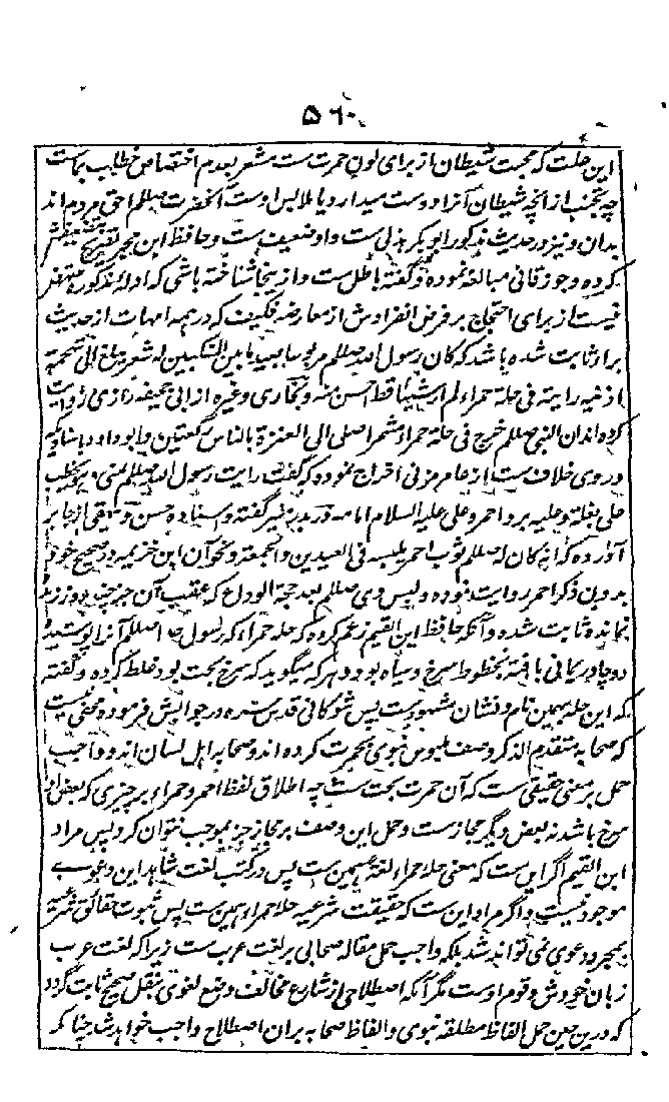 ۵٦۰
این علت که محبت شیطان از برای لون حمرت ست مشعر بعدم اختصاص خطاب بماست
چه تجنب از انچه شیطان آنرا دوست میدارد یا ملابس اوست آنحضرت صللم احق مردم اند
بدان و نیز در حدیث مذکور ابوبکر هذلی ست و او ضعیف ست و حافظ ابن حجر تصریح بتضعیفش
کرده و جوزقانی مبالغه نموده و گفته باطل ست و ازینجا شناخته باشی که ادله مذکوره منتهض
نیست از برای احتجاج بر فرض انفرادش از معارض فکیف که در همه امهات از حدیث
براء ثابت شده باشد که کان رسول الله صللم مربوعا بعید ما بین المنکبین له شعر یبلغ الی شحمة
اذنیه رایته فی حلة حمراء لم ار شیئا قط احسن منه و بخاری وغیره از ابی جحیفه روایت
کرده اند ان النبی صللم خرج فی حلة حمراء مشمرا صلی الی العنزة بالناس رکعتین و ابو داود باسنادیکه
در وی خلاف ست از عامر مزنی اخراج نموده که گفت رایت رسول الله صللم بمنی و هو یخطب
علی بغلة و علیه برد احمر و علی علیه السلام امامه در بدر منیر گفته و اسناده حسن و بیهقی از جابر
آورده که انه کان له صللم ثوب احمر یلبسه فی العیدین والجمعة و نحو آن ابن خزیمه در صحیح خود
بدون ذکر احمر روایت نموده و لبس وی صللم بعد حجة الوداع که عقب آن جز چند روز زنده
نمانده ثابت شده و آنکه حافظ ابن القیم زعم کرده که حله حمراء که رسول الله صللم آنرا پوشیده
دو چادر یمانی بافته بخطوط سرخ و سیاه بود و هر که میگوید که سرخ بحت بود غلط کرده و گفته
که این حله بهمین نام و نشان مشهورست پس شوکانی قدس سره در جوابش فرموده مخفی نیست
که صحابه متقدم الذکر وصف ملبوس نبوی بحمرت کرده اند و صحابه اهل لسان اند و واجب
حمل بر معنی حقیقی ست که آن حمرت بحت ست چه اطلاق لفظ احمر و حمراء بر چیزی که بعض او
سرخ باشد نه بعض دیگر مجاز ست و حمل این وصف بر مجاز جز بموجب نتوان کرد پس مراد
ابن القیم اگر این ست که معنی حله حمراء لغة همین ست پس در کتب لغت شاهد این دعوی
موجود نیست و اگر مراد این ست که حقیقت شرعیه حله حمراء همین ست پس ثبوت حقائق شرعیه
بمجرد دعوی نمی تواند شد بلکه واجب حمل مقاله صحابی بر لغت عرب ست زیرا که لغت عرب
زبان خودش و قوم اوست مگر آنکه اصطلاحی از شارع مخالف وضع لغوی بنقل صحیح ثابت گردد
که درین حین حمل الفاظ مطلقه نبوی و الفاظ صحابه بران اصطلاح واجب خواهد شد چنانکه